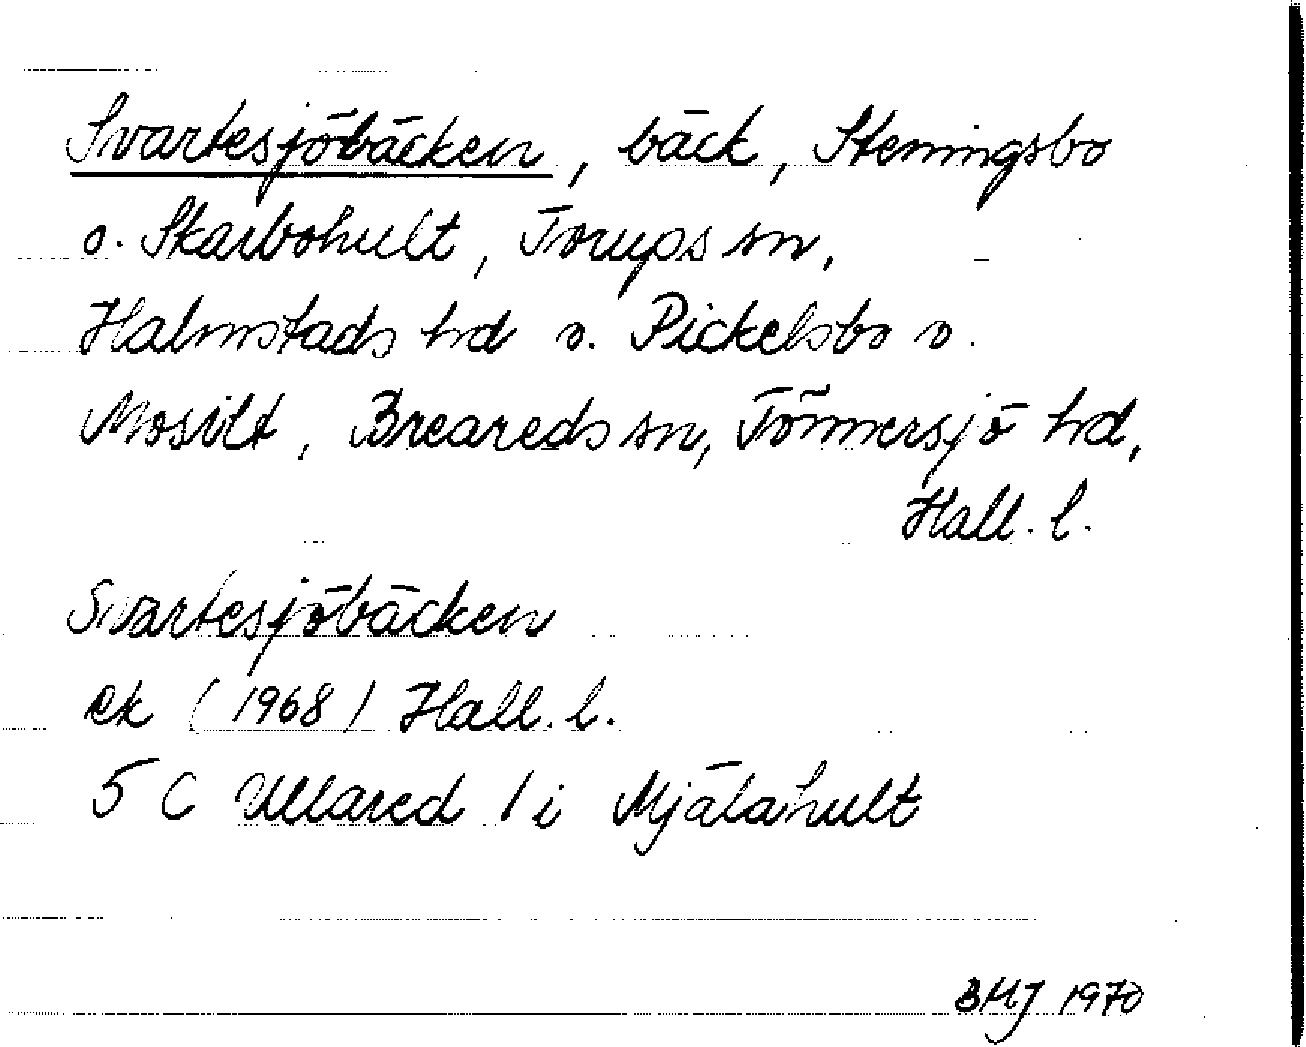 Svartesjöbäcken, bäck, Steningsbo
o. Skarbohult, Torups sn,
Halmstads hd o. Pickelsbo o.
Mosilt, Breareds sn, Tönnersjö hd,
Hall. l.
Svartesjöbäcken
ek (1968) Hall. l.
5 C Ullared / i Mjälahult
BMJ 1970